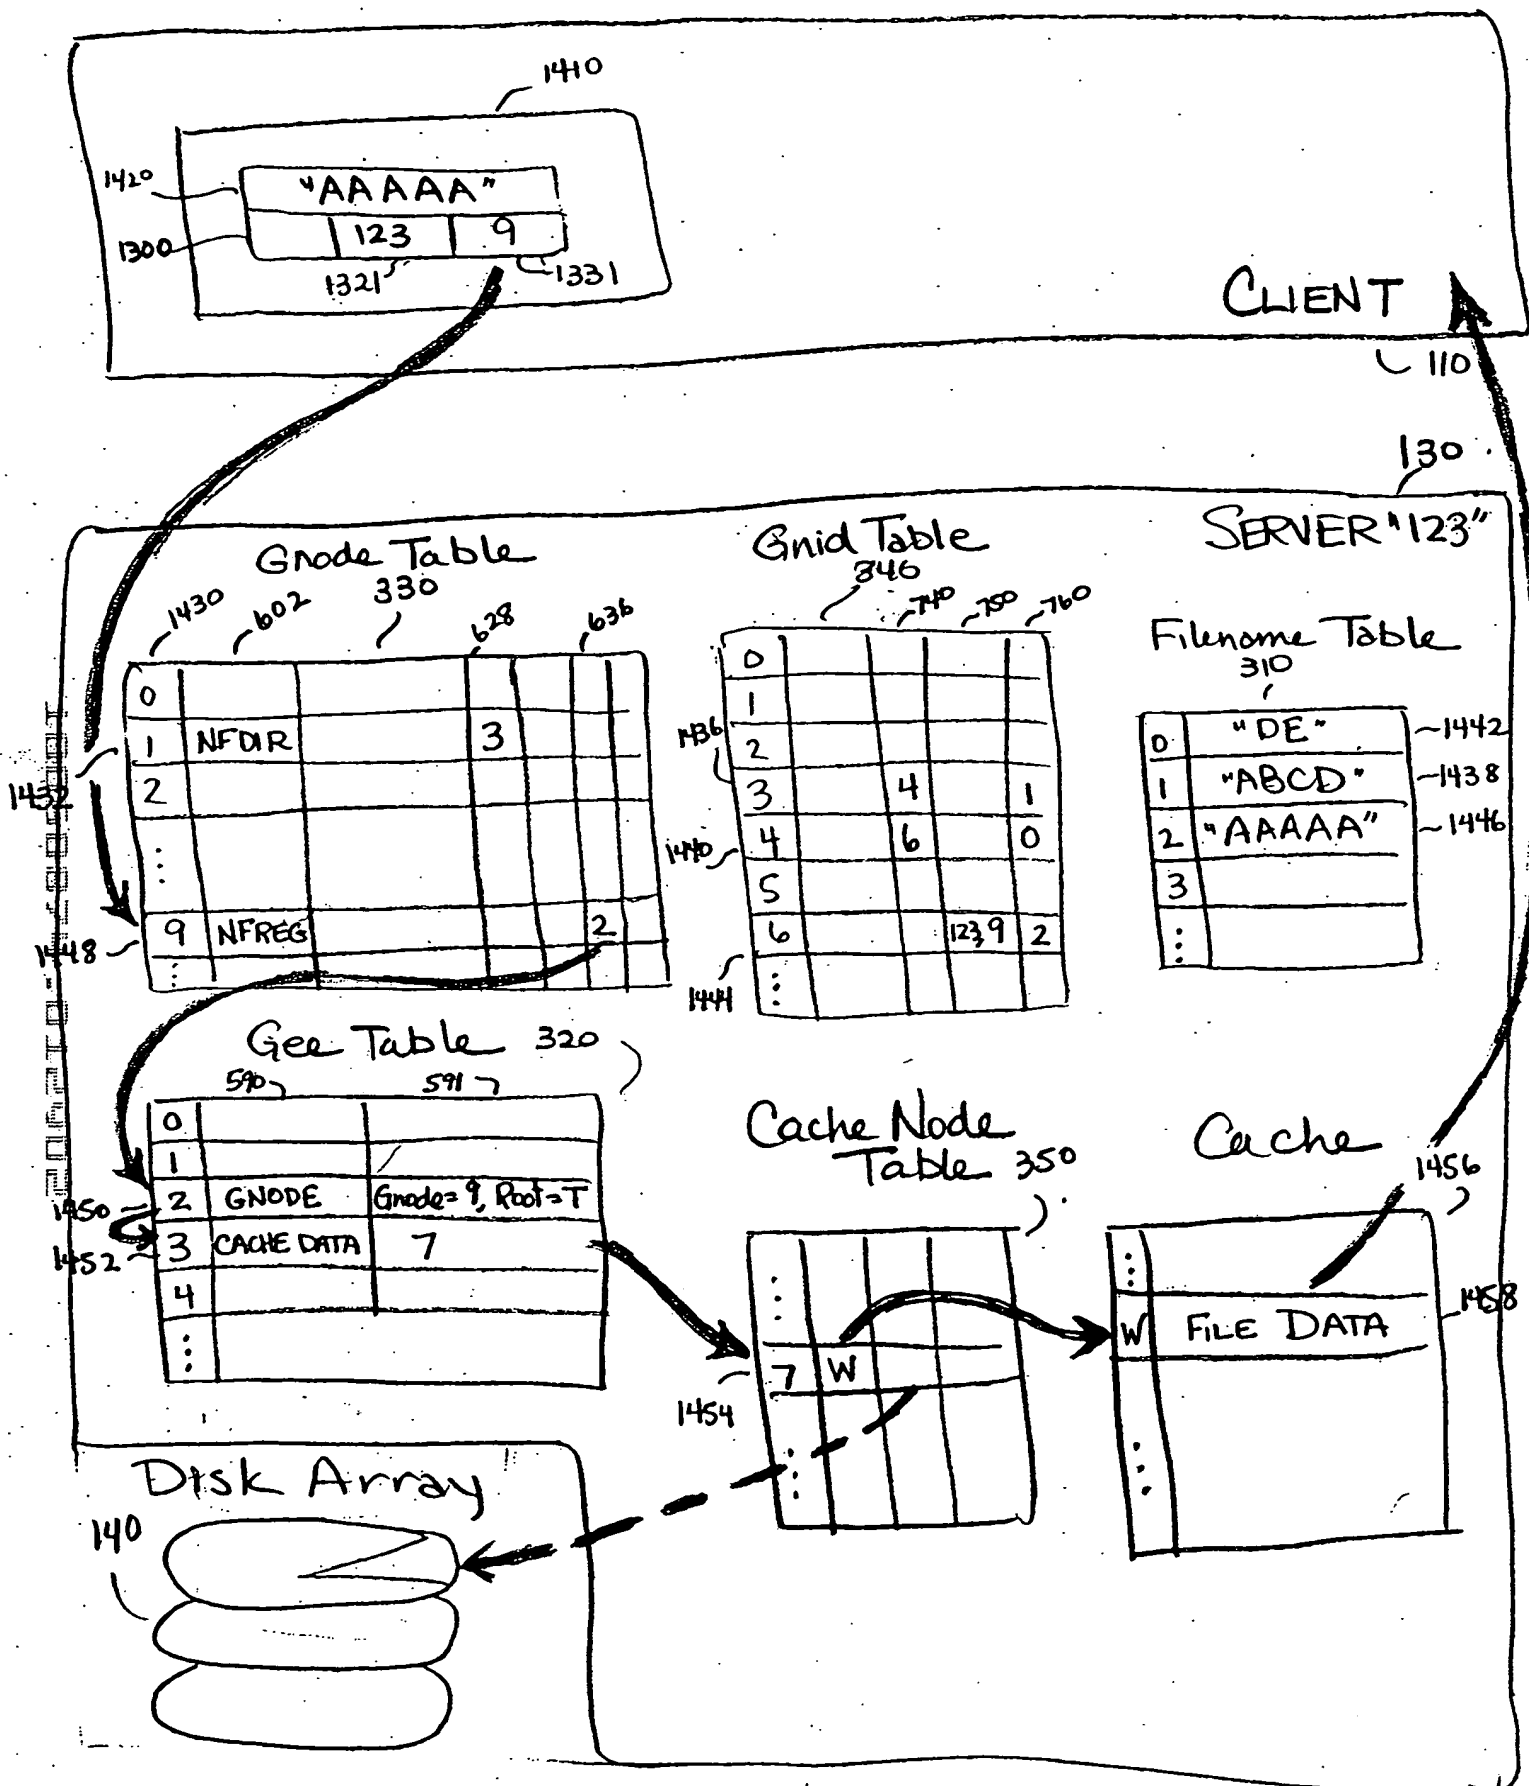 1410
1420
"AAAAA"
1300
123 9
1321
1331
CLIENT
110
130
SERVER "123"
Gnode Table
330
1430
602
628
636
0
1 NFDIR 3
2
⋮
9 NFREG 2
⋮
1432
1448
Gnid Table
346
740
750
760
0
1
2
3 4 1
4 6 0
5
6 123,9 2
⋮
1436
1440
1444
Filename Table
310
0 "DE"
1 "ABCD"
2 "AAAAA"
3
⋮
1442
1438
1446
Gee Table 320
590
591
0
1
2 GNODE Gnode=9, Root=T
3 CACHE DATA 7
4
⋮
1450
1452
Cache Node
Table 350
⋮
7 W
⋮
1454
Cache
1456
⋮
W FILE DATA
⋮
1458
Disk Array
140